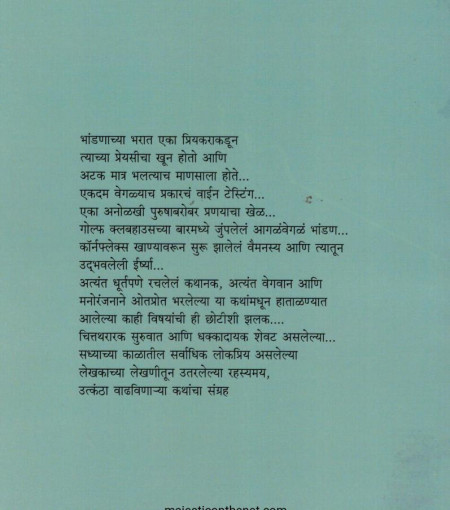 भांडणाच्या भरात एका प्रियकराकडून
त्याच्या प्रेयसीचा खून होतो आणि
अटक मात्र भलत्याच माणसाला होते...
एकदम वेगळ्याच प्रकारचं वाईन टेस्टिंग...
एका अनोळखी पुरुषाबरोबर प्रणयाचा खेळ...
गोल्फ क्लबहाउसच्या बारमध्ये जुंपलेलं आगळंवेगळं भांडण...
कॉर्नफ्लेक्स खाण्यावरून सुरू झालेलं वैमनस्य आणि त्यातून
उद्‌भवलेली ईर्ष्या...
अत्यंत धूर्तपणे रचलेलं कथानक, अत्यंत वेगवान आणि
मनोरंजनाने ओतप्रोत भरलेल्या या कथांमधून हाताळण्यात
आलेल्या काही विषयांची ही छोटीशी झलक....
चित्तथरारक सुरुवात आणि धक्कादायक शेवट असलेल्या...
सध्याच्या काळातील सर्वाधिक लोकप्रिय असलेल्या
लेखकाच्या लेखणीतून उतरलेल्या रहस्यमय,
उत्कंठा वाढविणाऱ्या कथांचा संग्रह